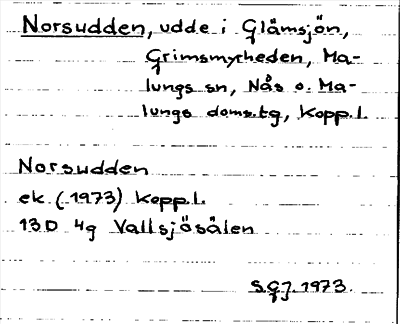 Norsudden, udde i Glämsjön,
Grimsmyrheden, Ma-
lungs sn, Nås o. Ma-
lungs doms.tg, Kopp.l.
Norsudden
ek. (1973) Kopp.l.
13D 4g Vallsjösälen
S.G.J. 1973.